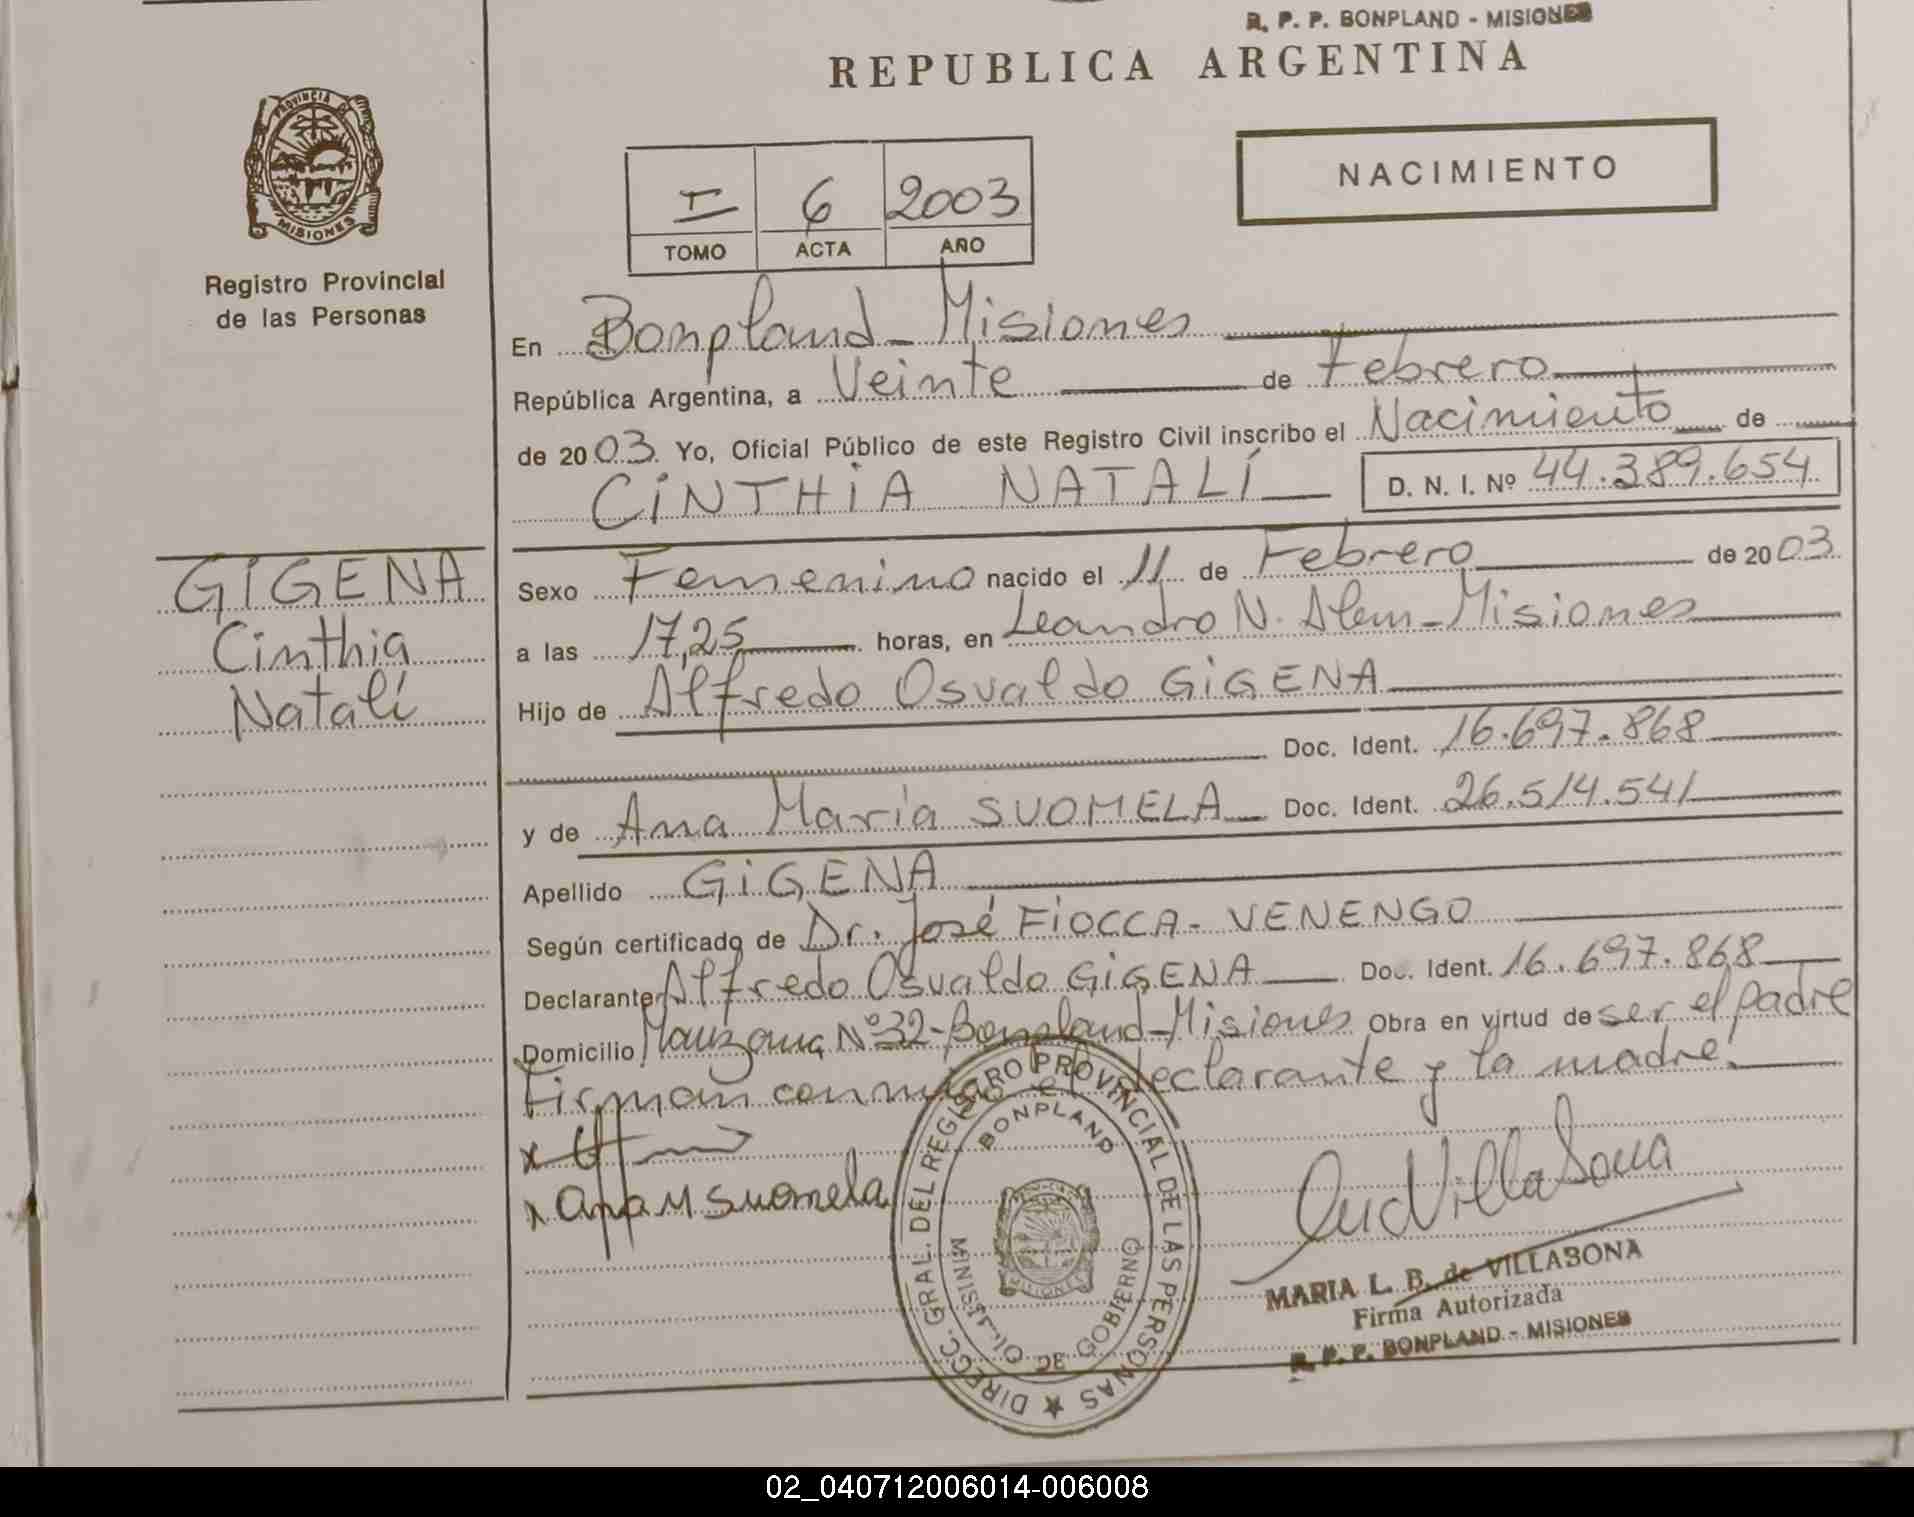 R. P. P. BONPLAND - MISIONES
REPUBLICA ARGENTINA
PROVINCIA DE
MISIONES
Registro Provincial
de las Personas
I 6 2003
TOMO ACTA AÑO
NACIMIENTO
En Bonpland - Misiones
República Argentina, a Veinte de Febrero
de 2003. Yo, Oficial Público de este Registro Civil inscribo el Nacimiento de
CINTHIA NATALÍ D. N. I. Nº 44.389.654
GIGENA
Cinthia
Natalí
Sexo Femenino nacido el 11 de Febrero de 2003
a las 17,25 horas, en Leandro N. Alem - Misiones
Hijo de Alfredo Osvaldo GIGENA
Doc. Ident. 16.697.868
y de Ana María SUOMELA Doc. Ident. 26.514.541
Apellido GIGENA
Según certificado de Dr. José FIOCCA - VENENGO
Declarante Alfredo Osvaldo GIGENA Doc. Ident. 16.697.868
Domicilio Manzana Nº 32 - Bonpland - Misiones Obra en virtud de ser el padre
Firman conmigo el declarante y la madre.
x
x Ana M Suomela
DIRECC. GRAL. DEL REGISTRO PROVINCIAL DE LAS PERSONAS
BONPLAND
MINISTERIO DE GOBIERNO
MISIONES
MARIA L. B. de VILLASONA
Firma Autorizada
R. P. P. BONPLAND - MISIONES
02_040712006014-006008